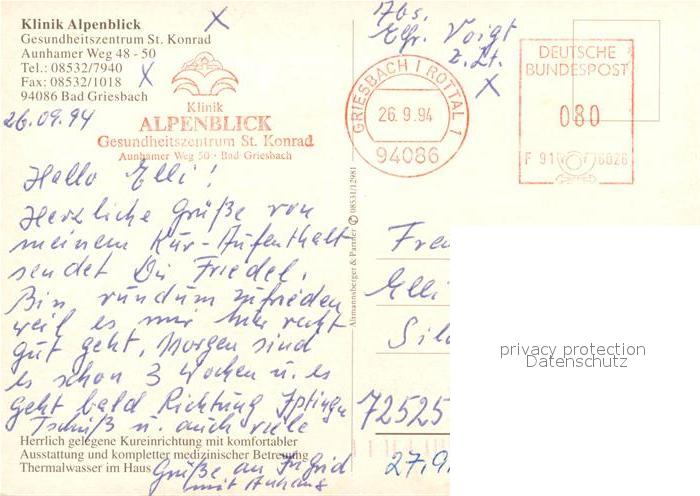 Klinik Alpenblick
Gesundheitszentrum St. Konrad
Aunhamer Weg 48 - 50
Tel.: 08532/7940
Fax: 08532/1018
94086 Bad Griesbach
X
X
Klinik
ALPENBLICK
Gesundheitszentrum St. Konrad
Aunhamer Weg 50 · Bad Griesbach
26.09.94
Abs.
Elfr. Voigt
z. Zt.
X
GRIESBACH I ROTTAL 1
26.9.94
94086
DEUTSCHE
BUNDESPOST
080
F 91 6026
Hallo Elli!
Herzliche Grüße von
meinem Kur-Aufenthalt
sendet Dir Friedel.
Bin rundum zufrieden
weil es mir hier recht
gut geht. Morgen sind
es schon 3 Wochen u. es
geht bald Richtung
Tschüß u. auch viele
Grüße an Ingrid
mit Anhang
Herrlich gelegene Kureinrichtung mit komfortabler
Ausstattung und kompletter medizinischer Betreuung
Thermalwasser im Haus
Ahmannsberger & Partner © 08531/12981
Elli
72525
27.9.
privacy protection
Datenschutz